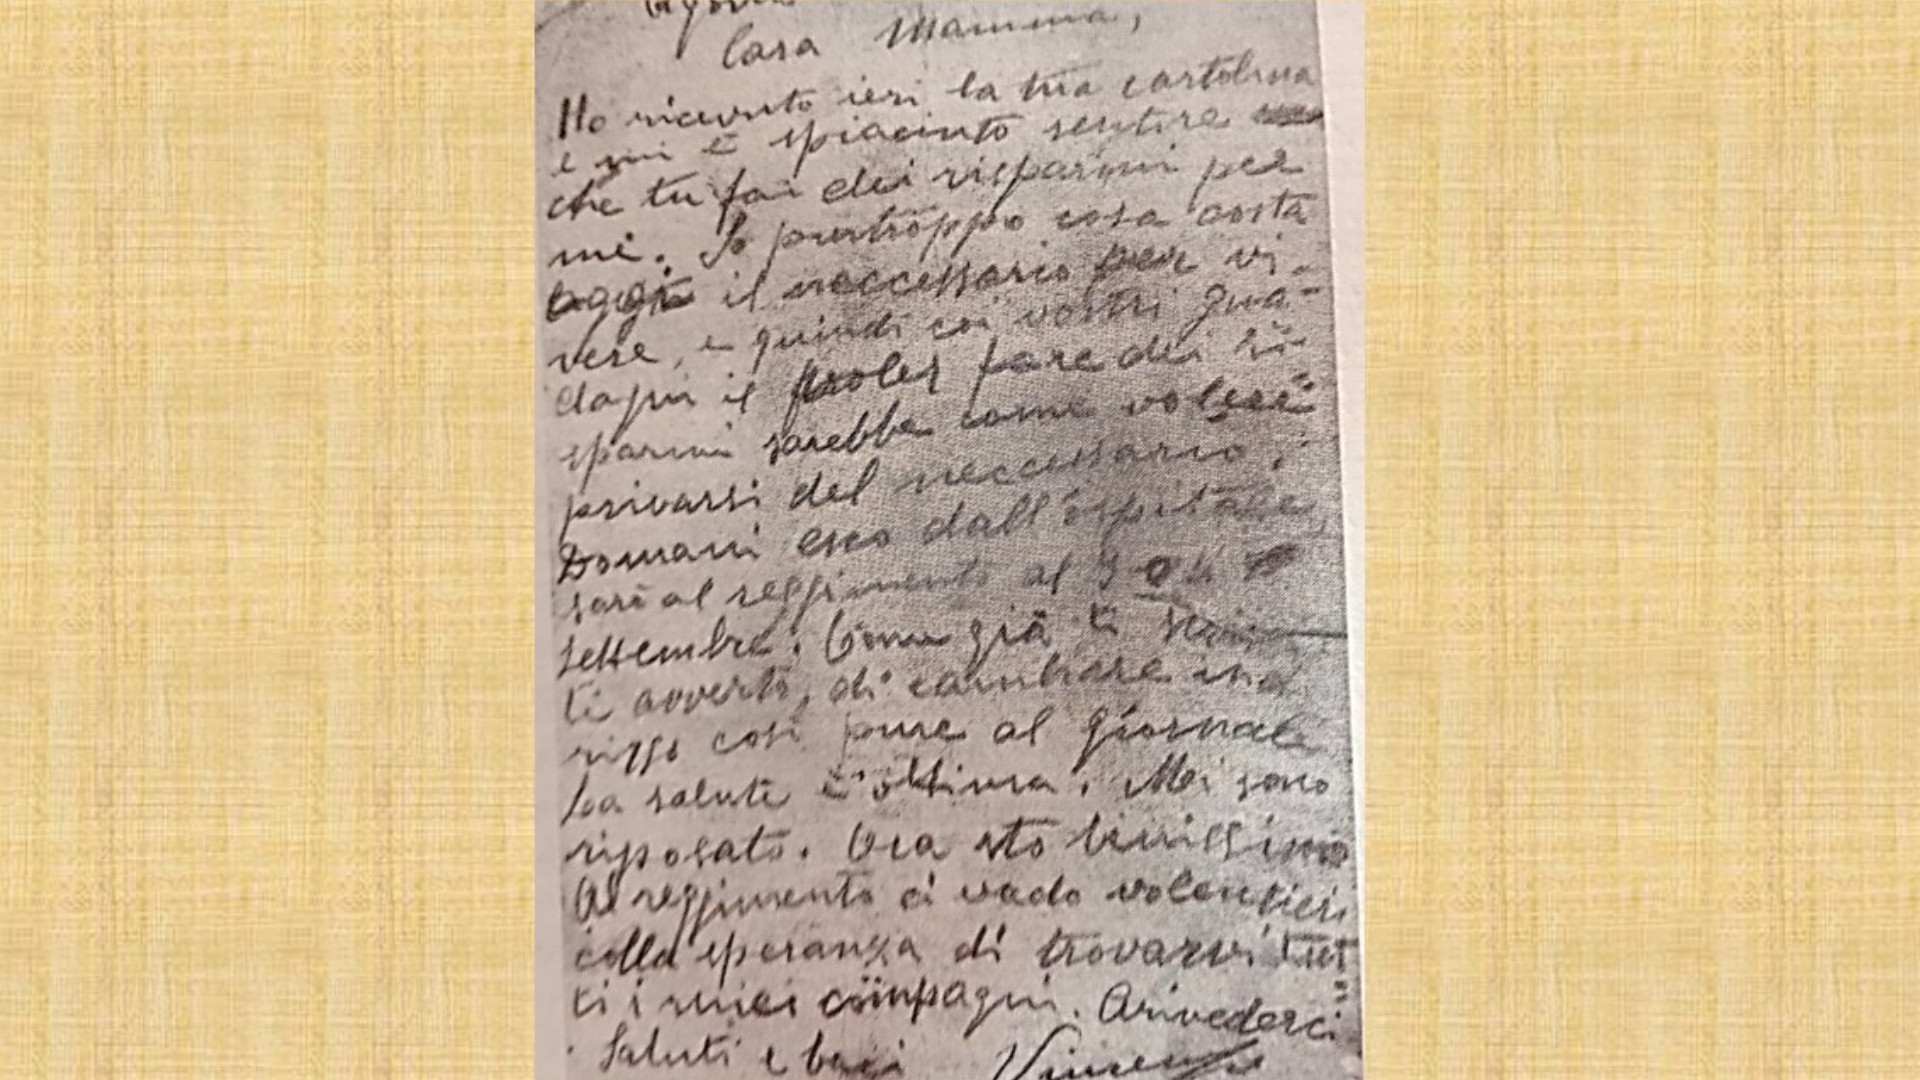 Cara Mamma,
Ho ricevuto ieri la tua cartolina
e mi è spiaciuto sentire
che tu fai dei risparmi per
me. Io purtroppo cosa costa
oggi il neccessario per vi-
vere, e quindi coi vostri gua-
dagni il voler fare dei ri-
sparmi sarebbe come voler
privarsi del neccessario.
Domani esco dall'ospitale
sarò al reggimento al
settembre. Come già ti
ti avverto, di cambiare indi
rizzo così pure al giornale
La salute è ottima. Mi sono
riposato. Ora sto benissimo
Al reggimento ci vado volentieri
colla speranza di trovarvi tut
ti i miei compagni. Arivederci
Saluti e baci Vincenzo